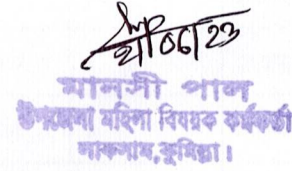 মানসী পাল
উপজেলা মহিলা বিষয়ক কর্মকর্তা
লাকসাম, কুমিল্লা।